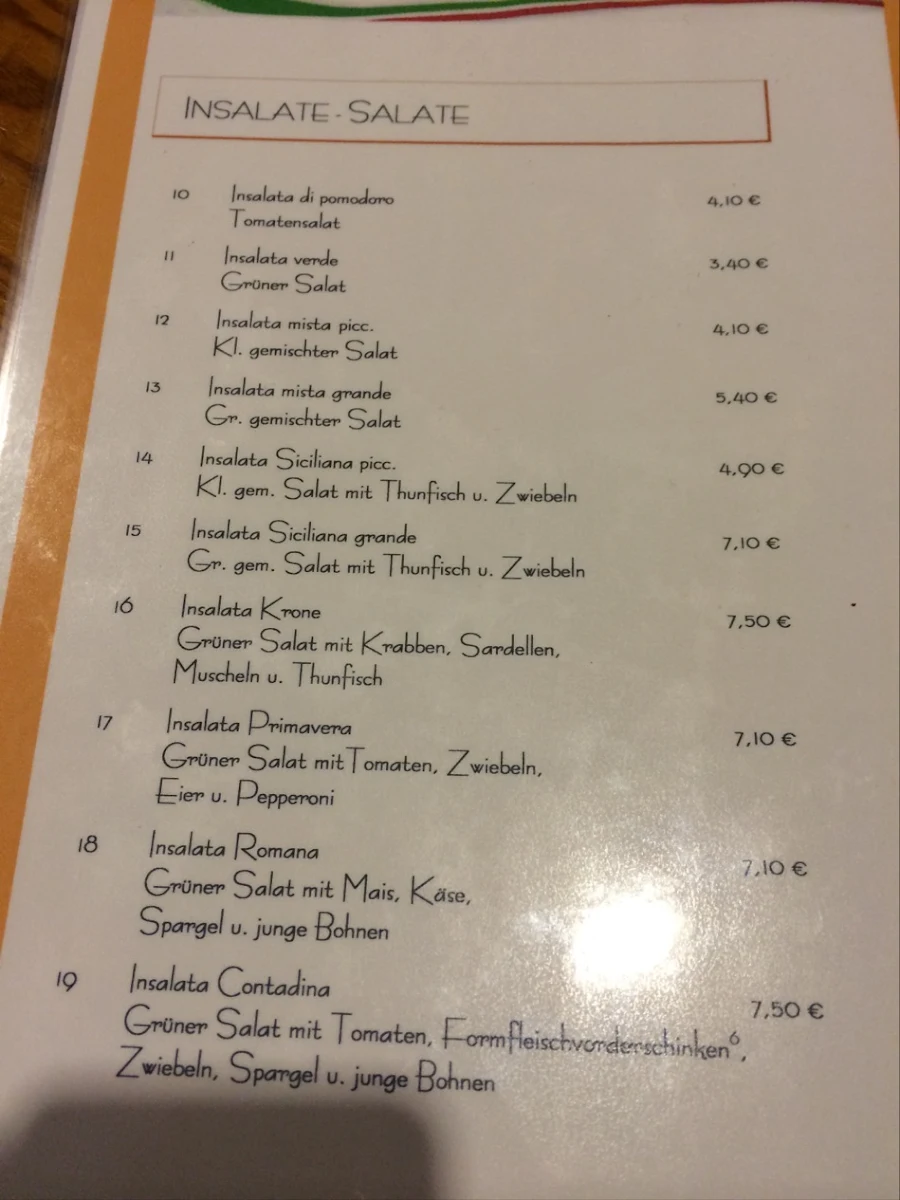 INSALATE - SALATE
10 Insalata di pomodoro 4,10 €
Tomatensalat
11 Insalata verde 3,40 €
Grüner Salat
12 Insalata mista picc. 4,10 €
Kl. gemischter Salat
13 Insalata mista grande 5,40 €
Gr. gemischter Salat
14 Insalata Siciliana picc. 4,90 €
Kl. gem. Salat mit Thunfisch u. Zwiebeln
15 Insalata Siciliana grande 7,10 €
Gr. gem. Salat mit Thunfisch u. Zwiebeln
16 Insalata Krone 7,50 €
Grüner Salat mit Krabben, Sardellen,
Muscheln u. Thunfisch
17 Insalata Primavera 7,10 €
Grüner Salat mit Tomaten, Zwiebeln,
Eier u. Pepperoni
18 Insalata Romana 7,10 €
Grüner Salat mit Mais, Käse,
Spargel u. junge Bohnen
19 Insalata Contadina 7,50 €
Grüner Salat mit Tomaten, Formfleischvorderschinken⁶,
Zwiebeln, Spargel u. junge Bohnen